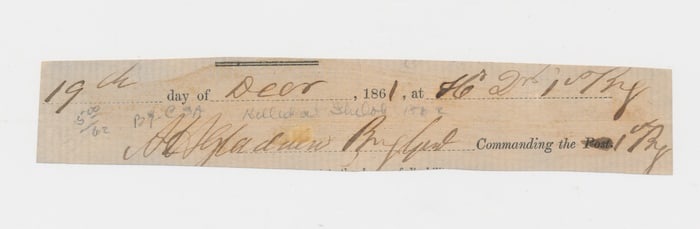 19th day of Decr, 1861, at Hd Qrs 1st Brig
500/62 B.G. CSA Killed at Shiloh 1862
A H Gladden Brig Genl Commanding the Post. 1st Brig